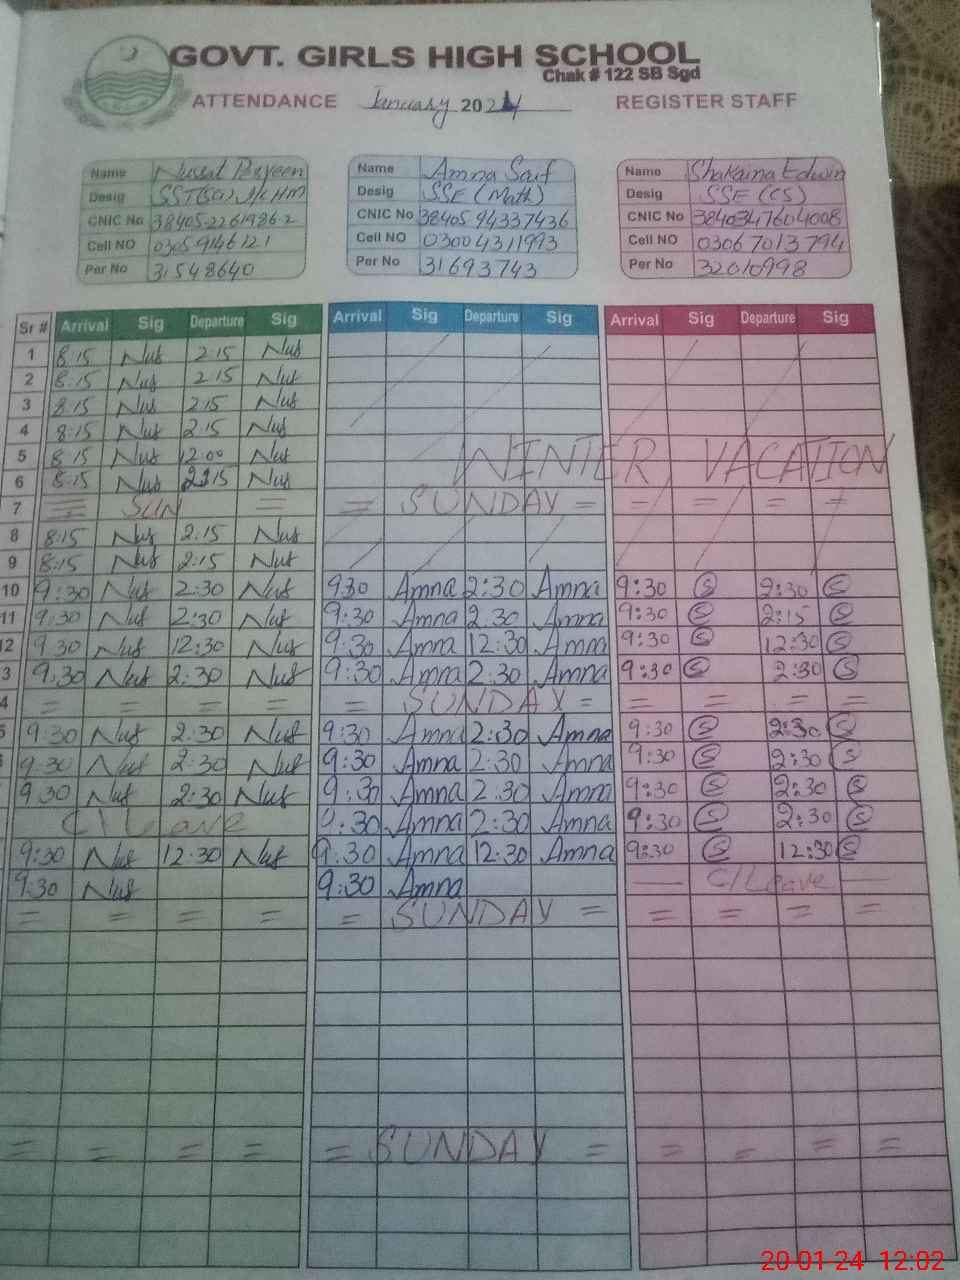 GOVT. GIRLS HIGH SCHOOL
Chak # 122 SB Sgd
ATTENDANCE January 2024 REGISTER STAFF
Name Nussat Perveen Name Amna Saif Name Shakaina Edwin
Desig SST(Sci) I/C HM Desig SSE (Math) Desig SSE (CS)
CNIC No 38405-2261986-2 CNIC No 38405 94337436 CNIC No 3840347604008
Cell NO 0305 9146121 Cell NO 0300 4311993 Cell NO 0306 7013794
Per No 31548640 Per No 31693743 Per No 32010998
Sr # Arrival Sig Departure Sig Arrival Sig Departure Sig Arrival Sig Departure Sig
1 8:15 Nus 2:15 Nus
2 8:15 Nus 2:15 Nus
3 8:15 Nus 2:15 Nus
4 8:15 Nus 2:15 Nus
5 8:15 Nus 12:00 Nus WINTER VACATION
6 8:15 Nus 2:15 Nus
7 = SUN = = SUNDAY = = = = =
8 8:15 Nus 2:15 Nus
9 8:15 Nus 2:15 Nus
10 9:30 Nus 2:30 Nus 9:30 Amna 2:30 Amna 9:30 S 2:30 S
11 9:30 Nus 2:30 Nus 9:30 Amna 2:30 Amna 9:30 S 2:15 S
2 9:30 Nus 12:30 Nus 9:30 Amna 12:30 Amna 9:30 S 12:30 S
3 9:30 Nus 2:30 Nus 9:30 Amna 2:30 Amna 9:30 S 2:30 S
4 = = = = = SUNDAY = = = = =
5 9:30 Nus 2:30 Nus 9:30 Amna 2:30 Amna 9:30 S 2:30 S
9:30 Nus 2:30 Nus 9:30 Amna 2:30 Amna 9:30 S 2:30 S
9:30 Nus 2:30 Nus 9:30 Amna 2:30 Amna 9:30 S 2:30 S
C/Leave 9:30 Amna 2:30 Amna 9:30 S 2:30 S
9:30 Nus 12:30 Nus 9:30 Amna 12:30 Amna 9:30 S 12:30 S
9:30 Nus 9:30 Amna — C/Leave —
= = = = = SUNDAY = = = = =
= = = = = SUNDAY = = = = =
20-01-24 12:02